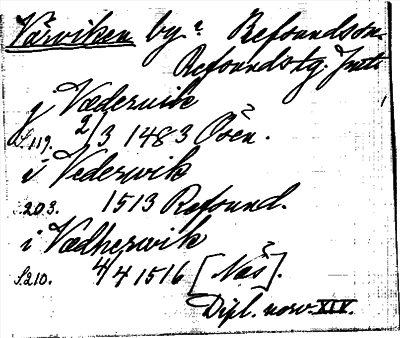 Värviken by: Refsundsön.
Refsunds tg. Jmtl.
j Vædervik
S. 119. 2/3 1483 Ösen.
i Vederwik
S. 203. 1513 Refsund.
i Vædherwik
S. 210. 4/4 1516 [Näs].
Dipl. norv. XIV.